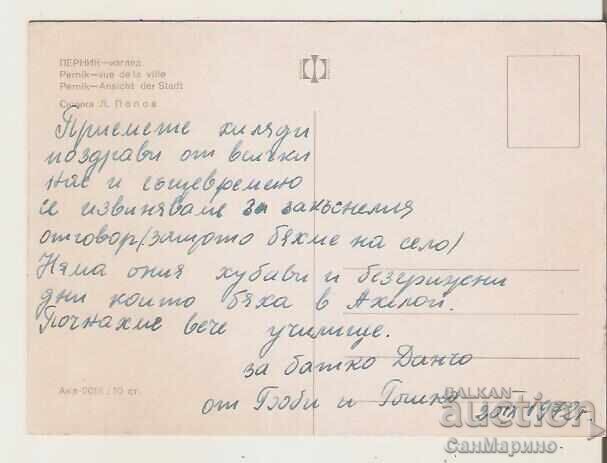 ПЕРНИК—изглед
Pernik—vue de la ville
Pernik—Ansicht der Stadt
Снимка Л. Попов
Приемете хиляди
поздрави от всички
нас и същевремено
се извиняваме за закъснелия
отговор /защото бяхме на село/
Няма ония хубави и безгрижни
дни които бяха в Ахелой.
Почнахме вече училище.
за батко Данчо
от Боби и Гошко
1972г.
Акл-2018 / 10 ст.
BALKAN
auction
СанМарино